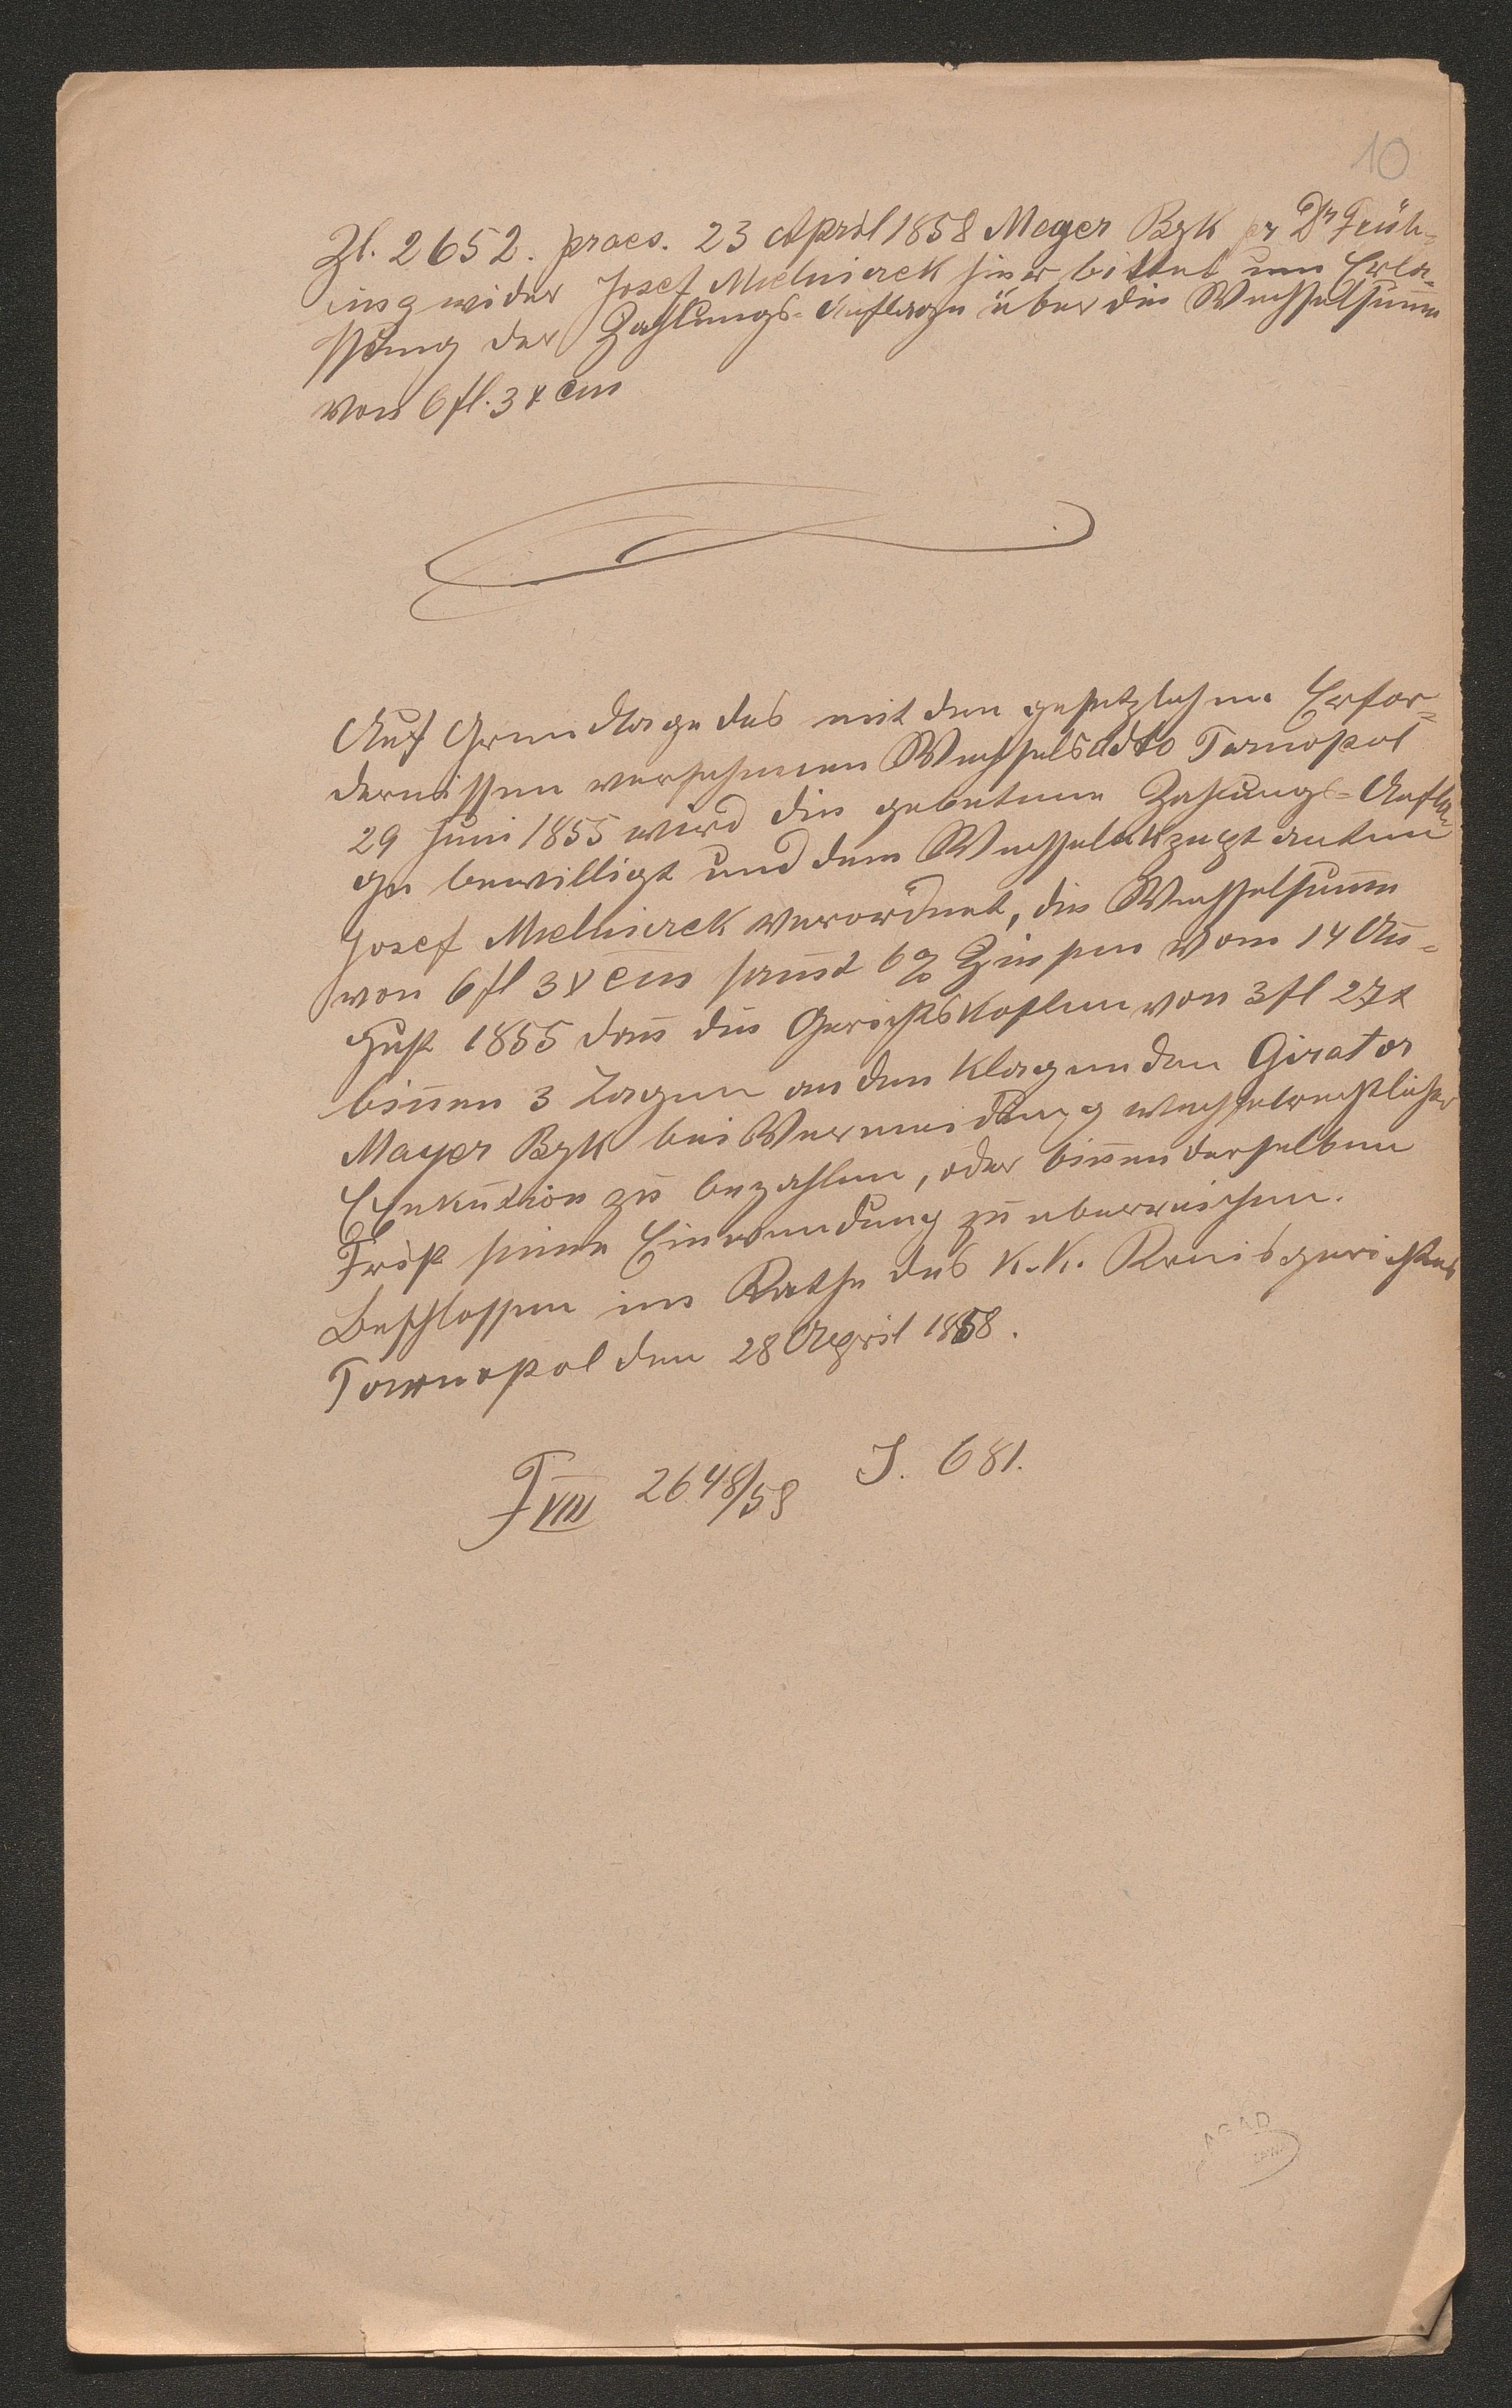 10
Zl. 2652. praes. 23 April 1858 Meyer Byk pr Dr Früh-
ling wider Josef Mielniczek hier bittet um Erla-
ssung der Zahlungs-Auflage über die Wechselsum̄e
von 6 fl. 3 x CM
Auf Grundlage des mit den gesetzlichen Erfor-
dernissen versehenen Wechsels ddto Tarnopol
29 Juni 1855 wird die gebetene Zahlungs-Aufla-
ge bewilligt und dem Wechselakzeptanten
Josef Mielniczek verordnet, die Wechselsum̄e
von 6 fl 3 x CM sam̄t 6% Zinsen vom 14 Au-
gust 1855 dan̄ die Gerichtskosten von 3 fl 27 x
bin̄en 3 Tagen an den klagenden Girator
Mayer Byk bei Vermeidung wechselrechtlicher
Exekution zu bezahlen, oder bin̄en derselben
Frist seine Einwendung zu überreichen.
Beschlossen im Rathe des k.k. Kreisgerichtes
Tarnopol den 28 April 1858.
F VIII 2648/58 J. 681.
AGAD